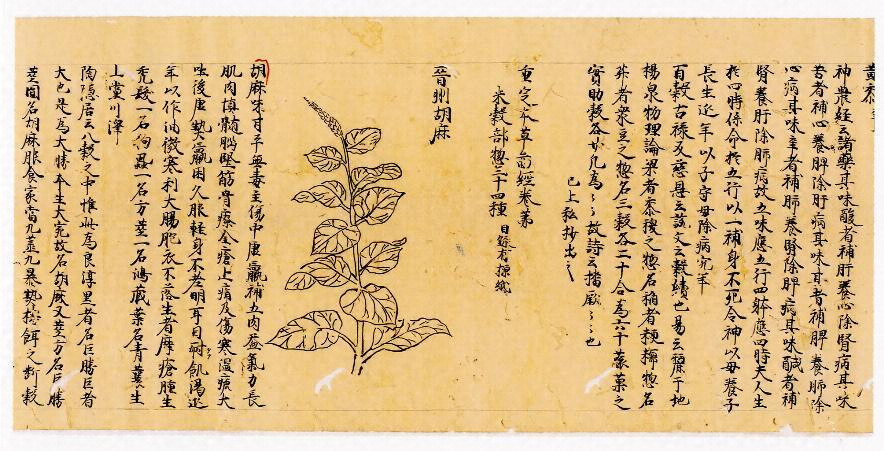 神農経云諸藥其味酸者補肝養心除腎病其味
苦者補心養脾除肝病其味甘者補脾養肺除
心病其味辛者補肺養腎除脾病其味鹹者補
腎養肝除肺病故五味應五行四躰應四時夫人生
於四時係命於五行以一補身不死令神以母養子
長生延年以子守母除病究年
百穀古禄反慈恩云説文云穀續也易云麗于地
楊泉物理論梁者黍稷之惣名稲者粳糯惣名
者衆豆之惣名三穀各二十合為六十蔬菓之
實助穀各廿凡為〻〻故詩云播厥〻〻也
已上私抄出之
重定本草 經卷第
米穀部惣三十四種 目録有標紙
晋州胡麻
胡麻味甘平無毒主傷中虚羸補五内益氣力長
肌肉填髓脳堅筋骨療金瘡止痛及傷寒温瘧大
吐後虚熱羸困久服軽身不老明耳目耐飢渇延
年以作油微寒利大腸胞衣不落生者摩瘡腫生
禿髪一名狗蝨一名方莖一名鴻蔵葉名青蘘生
上黨川澤
陶隠居云八穀之中惟此為良淳黒者名巨勝巨者
大也是為大勝本生大宛故名胡麻又莖方名巨勝
莖圓名胡麻服食家當九蒸九暴熬擣餌之断穀